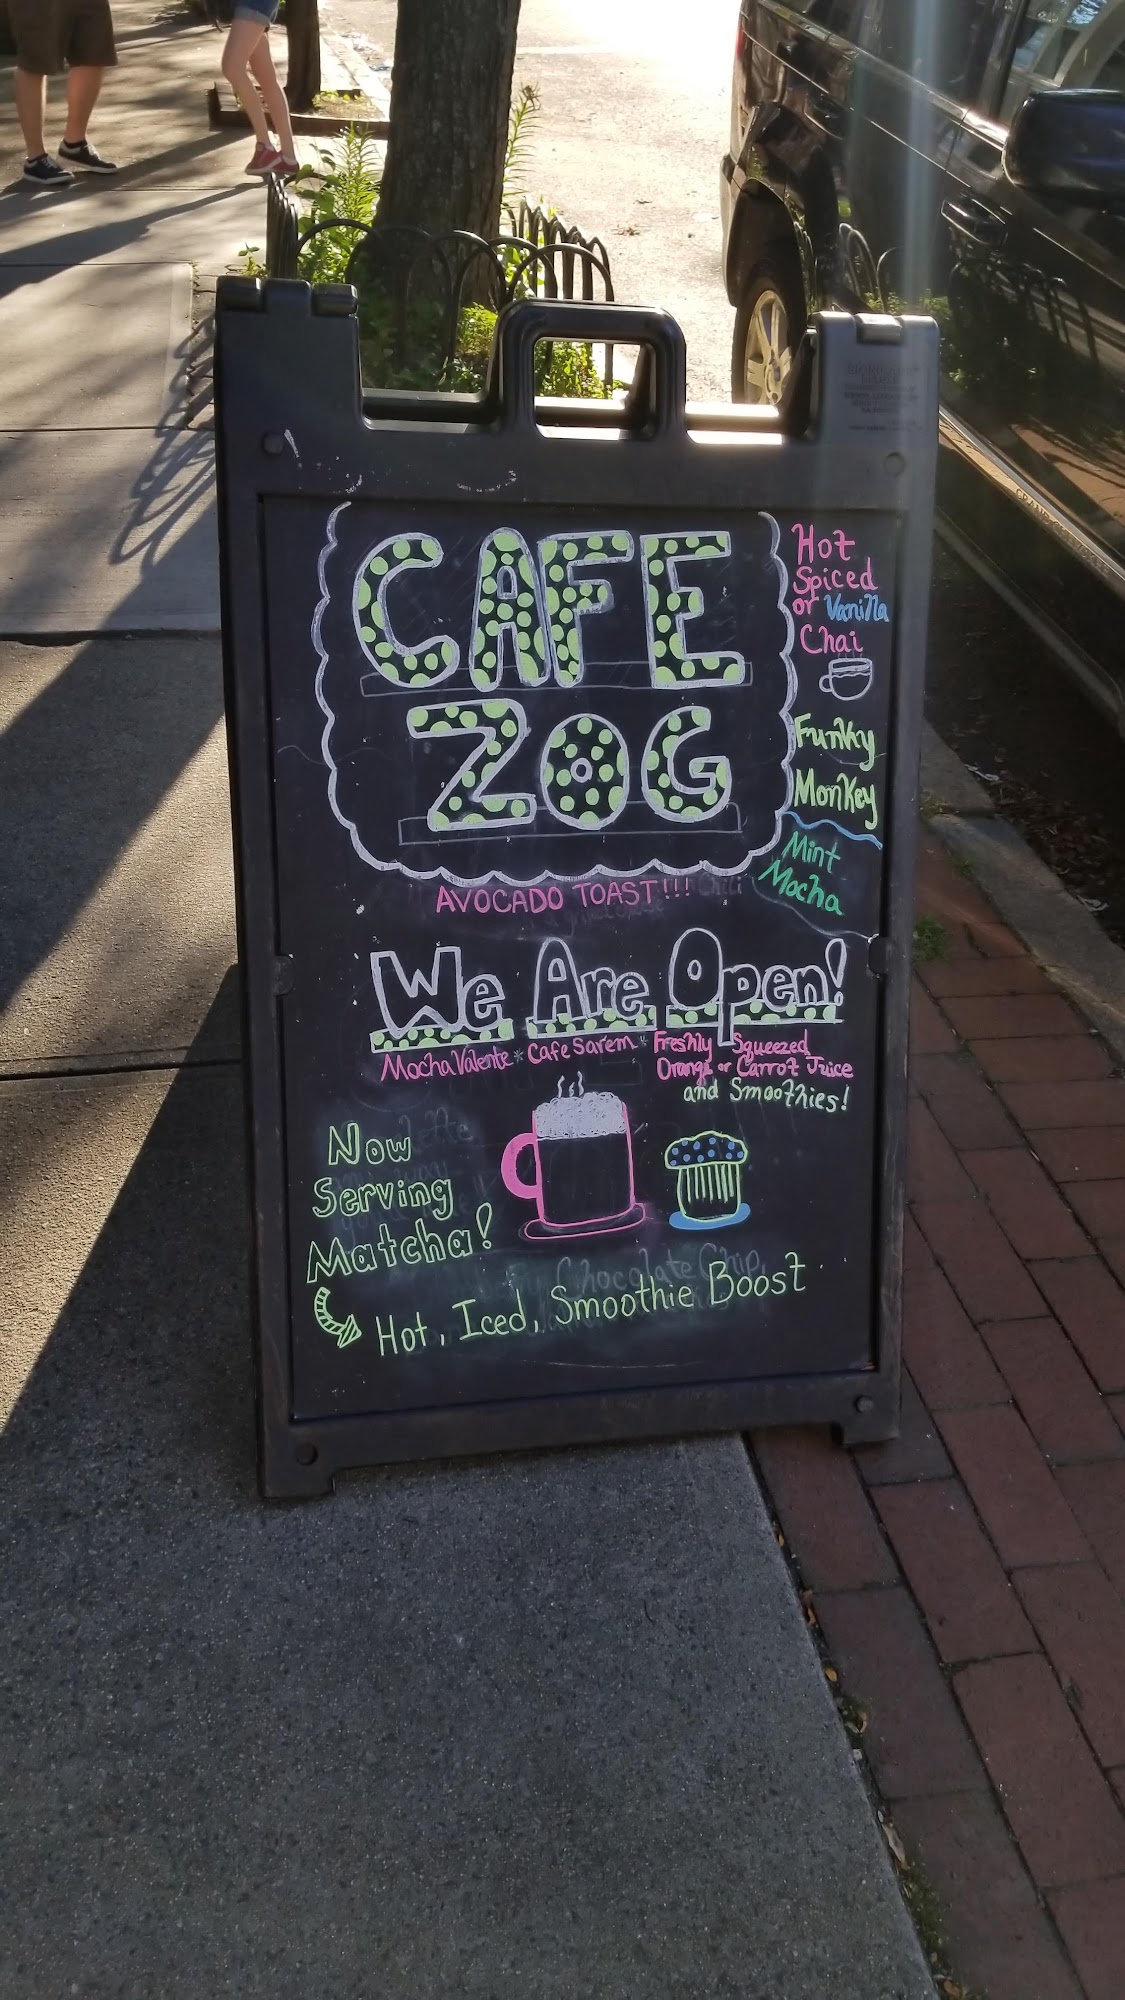 CAFE
ZOG
Hot
Spiced
or Vanilla
Chai
Funky
Monkey
Mint
Mocha
AVOCADO TOAST!!!
We Are Open!
Mocha Valente * Cafe Sarem * Freshly Squeezed
Orange or Carrot Juice
and Smoothies!
Now
Serving
Matcha!
Chocolate Chip
Hot, Iced, Smoothie Boost